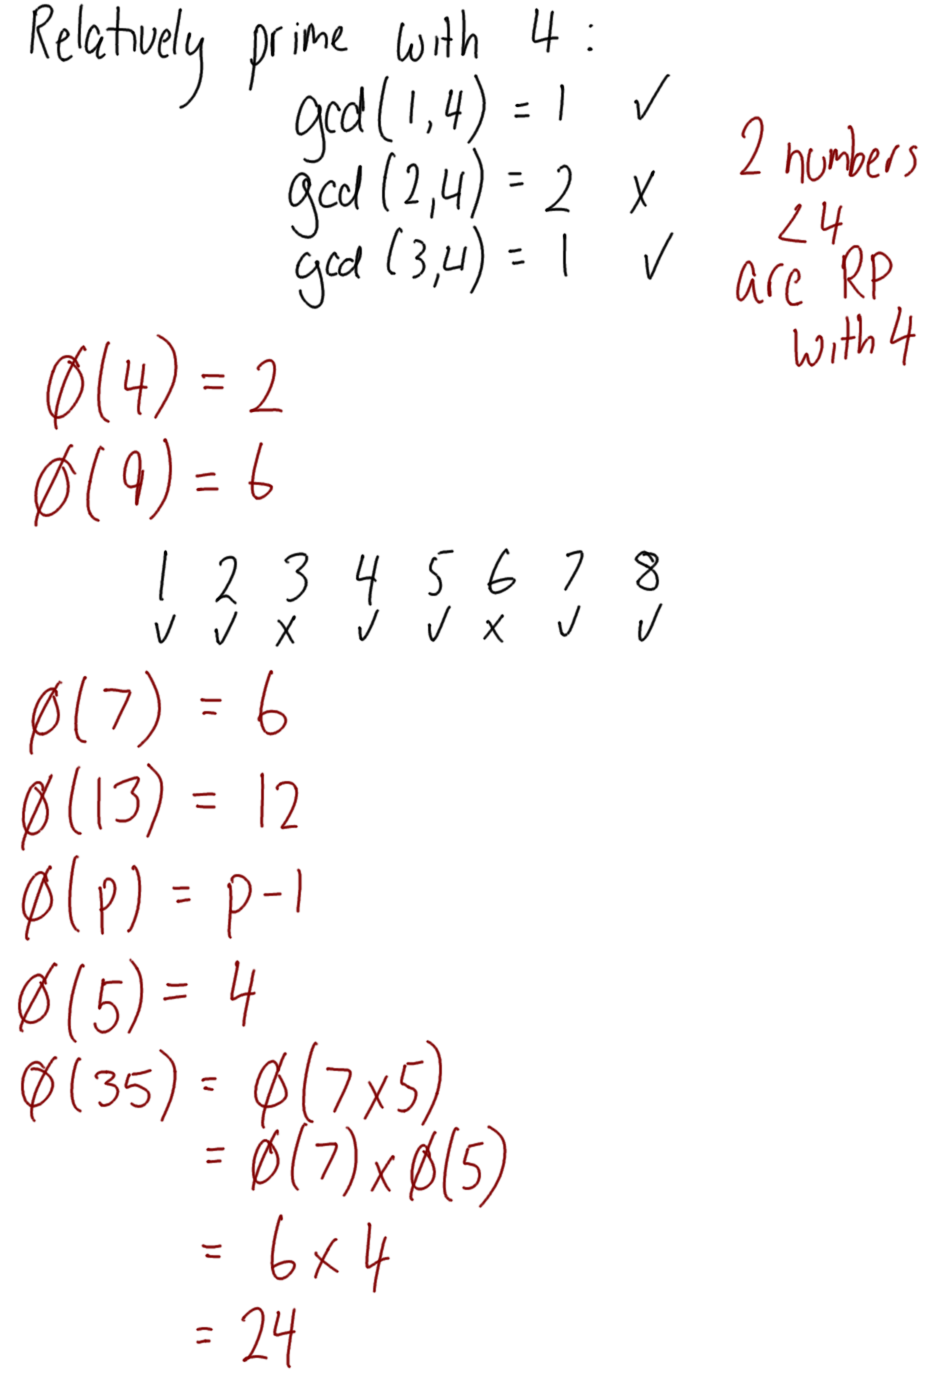 Relatively prime with 4 :
gcd(1,4) = 1 ✓
gcd(2,4) = 2 x
gcd(3,4) = 1 ✓
2 numbers
<4
are RP
with 4
ø(4) = 2
ø(9) = 6
1 2 3 4 5 6 7 8
✓ ✓ x ✓ ✓ x ✓ ✓
ø(7) = 6
ø(13) = 12
ø(p) = p-1
ø(5) = 4
ø(35) = ø(7x5)
= ø(7) x ø(5)
= 6 x 4
= 24